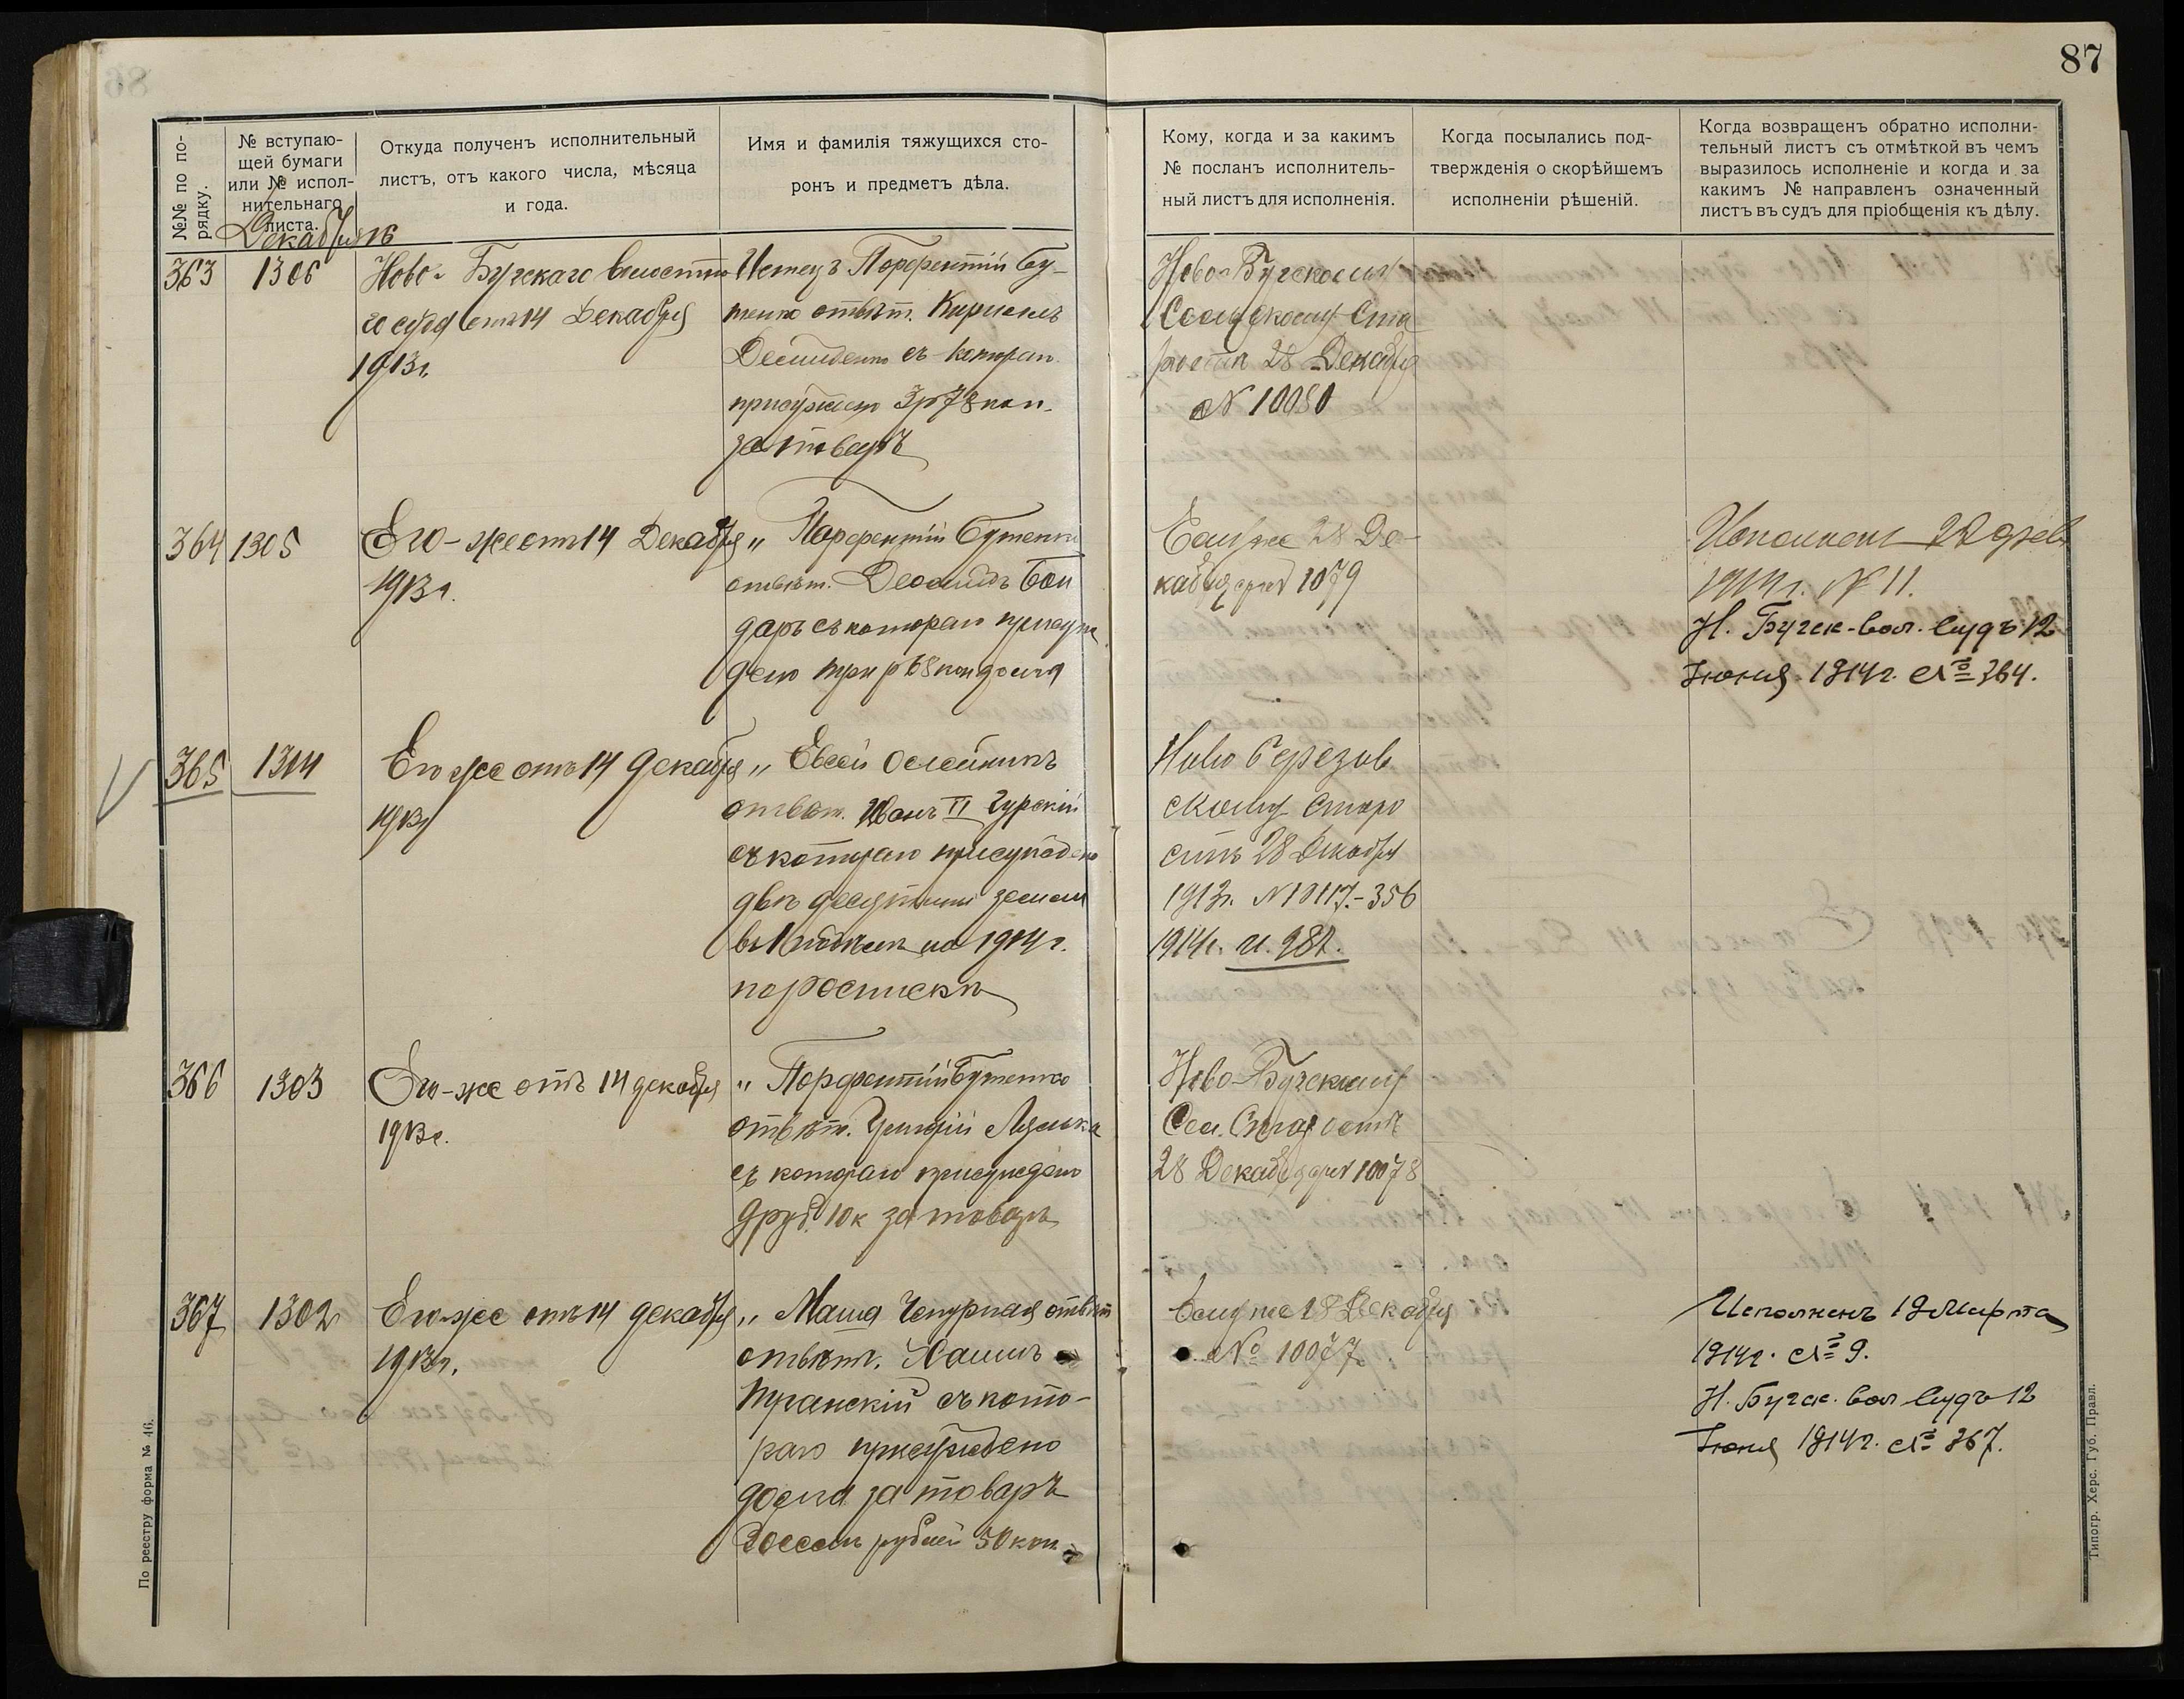 87
№№ по по-
рядку.
№ вступаю-
щей бумаги
или № испол-
нительнаго
листа.
Откуда полученъ исполнительный
листъ, отъ какого числа, мѣсяца
и года.
Имя и фамилія тяжущихся сто-
ронъ и предметъ дѣла.
Кому, когда и за какимъ
№ посланъ исполнитель-
ный листъ для исполненія.
Когда посылались под-
твержденія о скорѣйшемъ
исполненіи рѣшеній.
Когда возвращенъ обратно исполни-
тельный листъ съ отмѣткой въ чемъ
выразилось исполненіе и когда и за
какимъ № направленъ означенный
листъ въ судъ для пріобщенія къ дѣлу.
Декабря 16
363
1306
Ново-Бугскаго волостно
го суда отъ 14 Декабря
1913г.
Истецъ Порфентій Бу-
тенко отвѣт. Кириллъ
Демиденко съ котораго
присуждено 3р 78 коп.
за товаръ
Ново-Бугскому
Сельскому Ста
ростѣ 28 Декабря
№ 10080
364
1305
Его-же отъ 14 Декабря
1913г.
„ Парфентій Бутенко
отвѣт. Леонидъ Бон
даръ съ котораго присуж
дено три р 68 коп долга
Ему же 28 Де-
кабря 1079
Исполненъ 22 фев
1914г. № 11.
Н. Бугск-вол. Судъ 12
Іюня 1914г. № 364.
365
1304
Его же отъ 14 декабря
1913г
„ Евсей Олейникъ
отвѣт. Иванъ II Гурскій
съ котораго присуждено
двѣ десятины земли
на 1914г.
по роспискѣ
Ново Березов
скому Старо
стѣ 28 Декабря
1913г. № 10117.-356
1914г. и. 982.
366
1303
Его-же отъ 14 декабря
1913г.
„ Порфентій Бутенко
отвѣт. Григорій
съ котораго присуждено
9 руб. 10 к за товаръ
Ново-Бугскому
Сел. Старостѣ
28 Декабря 10078
367
1302
Его-же отъ 14 декабря
1913г.
„ Маша Чепурная отвѣт
отвѣт. Хаимъ
Транскій съ кото-
раго присуждено
долга за товаръ
Восемь рублей 50 коп
Ему же 28 Декабря
№ 10077.
Исполненъ 19 Марта
1914г. № 9.
Н. Бугск. вол Судъ 12
Іюня 1914г. № 367.
По реестру форма № 46.
Типогр. Херс. Губ. Правл.